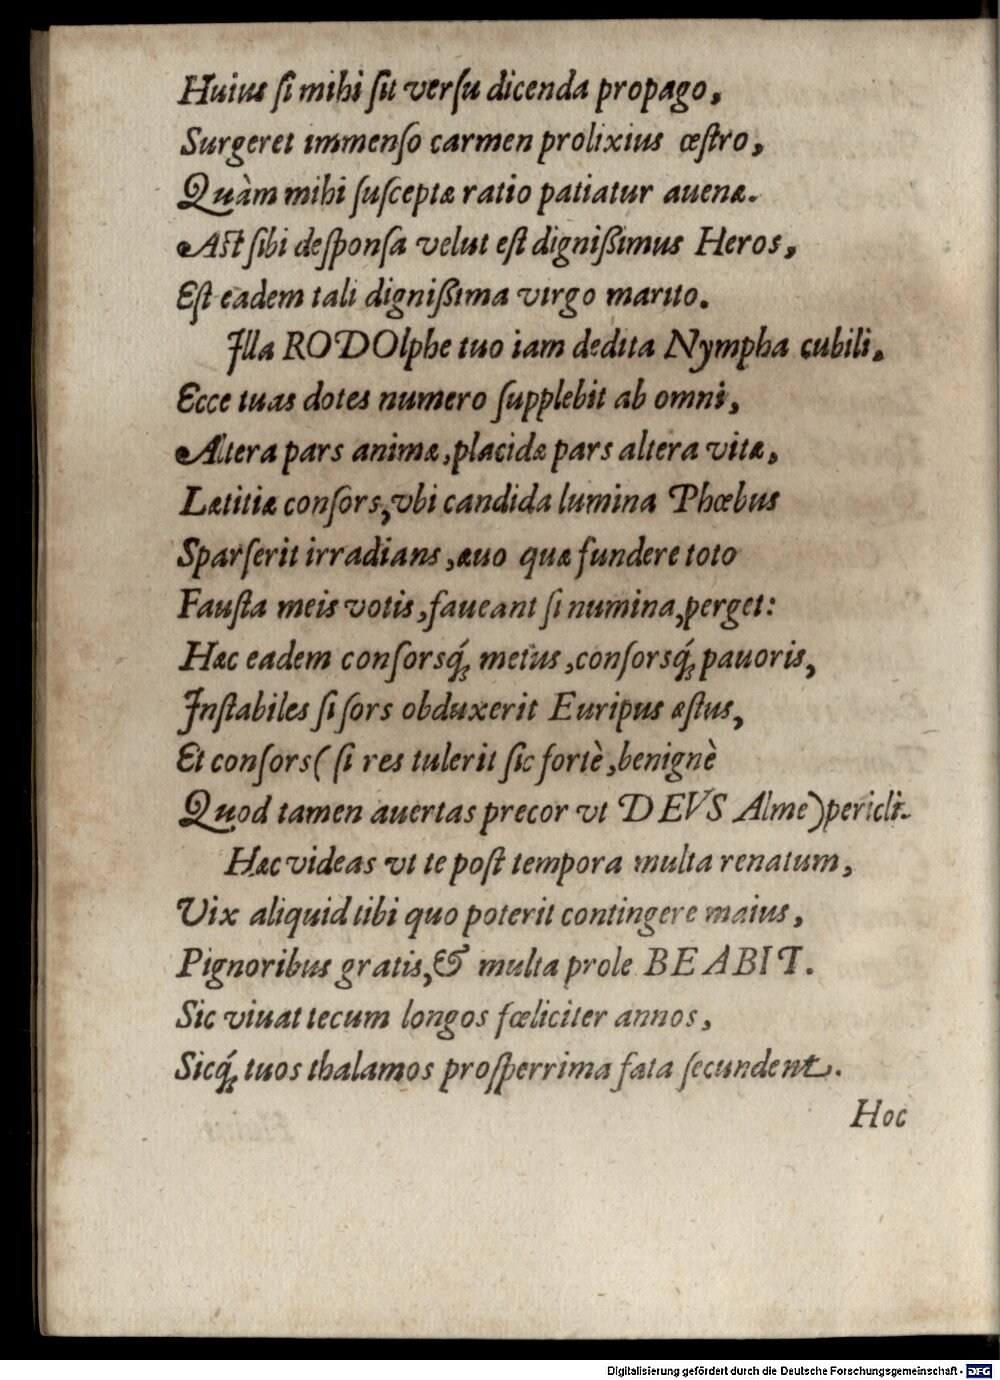 Huius ſi mihi ſit verſu dicenda propago,
Surgeret immenſo carmen prolixius œſtro,
Quàm mihi ſuſceptæ ratio patiatur auenæ.
Aſt ſibi deſponſa velut eſt digniſsimus Heros,
Eſt eadem tali digniſsima virgo marito.
Illa RODOlphe tuo iam dedita Nympha cubili,
Ecce tuas dotes numero ſupplebit ab omni,
Altera pars animæ, placidæ pars altera vitæ,
Lætitiæ conſors, vbi candida lumina Phœbus
Sparſerit irradians, æuo quæ fundere toto
Fauſta meis votis, faueant ſi numina, perget:
Hæc eadem conſorsq́; metus, conſorsq́; pauoris,
Inſtabiles ſi ſors obduxerit Euripus æſtus,
Et conſors (ſi res tulerit ſic fortè, benignè
Quod tamen auertas precor vt DEVS Alme) pericli.
Hæc videas vt te poſt tempora multa renatum,
Vix aliquid tibi quo poterit contingere maius,
Pignoribus gratis, & multa prole BEABIT.
Sic viuat tecum longos fœliciter annos,
Sicq́; tuos thalamos proſperrima fata ſecundent.
Hoc
Digitalisierung gefördert durch die Deutsche Forschungsgemeinschaft - DFG